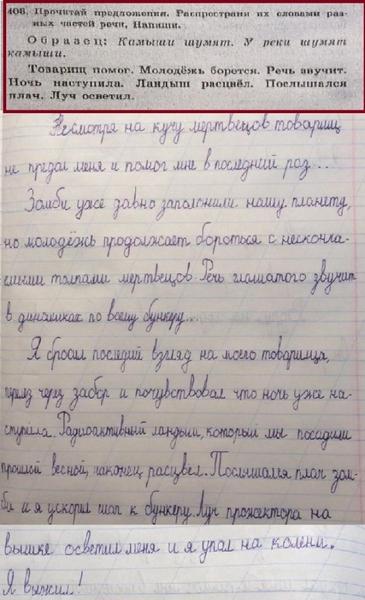 406. Прочитай предложения. Распространи их словами раз-
ных частей речи. Напиши.
Образец: Камыши шумят. У реки шумят
камыши.
Товарищ помог. Молодёжь борется. Речь звучит.
Ночь наступила. Ландыш расцвёл. Послышался
плач. Луч осветил.
Несмотря на кучу мертвецов товарищ
не предал меня и помог мне в последний раз...
Зомби уже давно заполонили нашу планету,
но молодёжь продолжает бороться с нескончае-
мыми толпами мертвецов. Речь глашатого звучит
в динамиках по всему бункеру...
Я бросил последий взгляд на моего товарища,
перелез через забор и почувствовал что ночь уже на-
ступила. Радиоактивный ландыш, который мы посадили
прошлой весной, наконец расцвел. Послышался плач зом-
би и я ускорил шаг к бункеру. Луч прожектора на
вышке осветил меня и я упал на колени.
Я выжил!